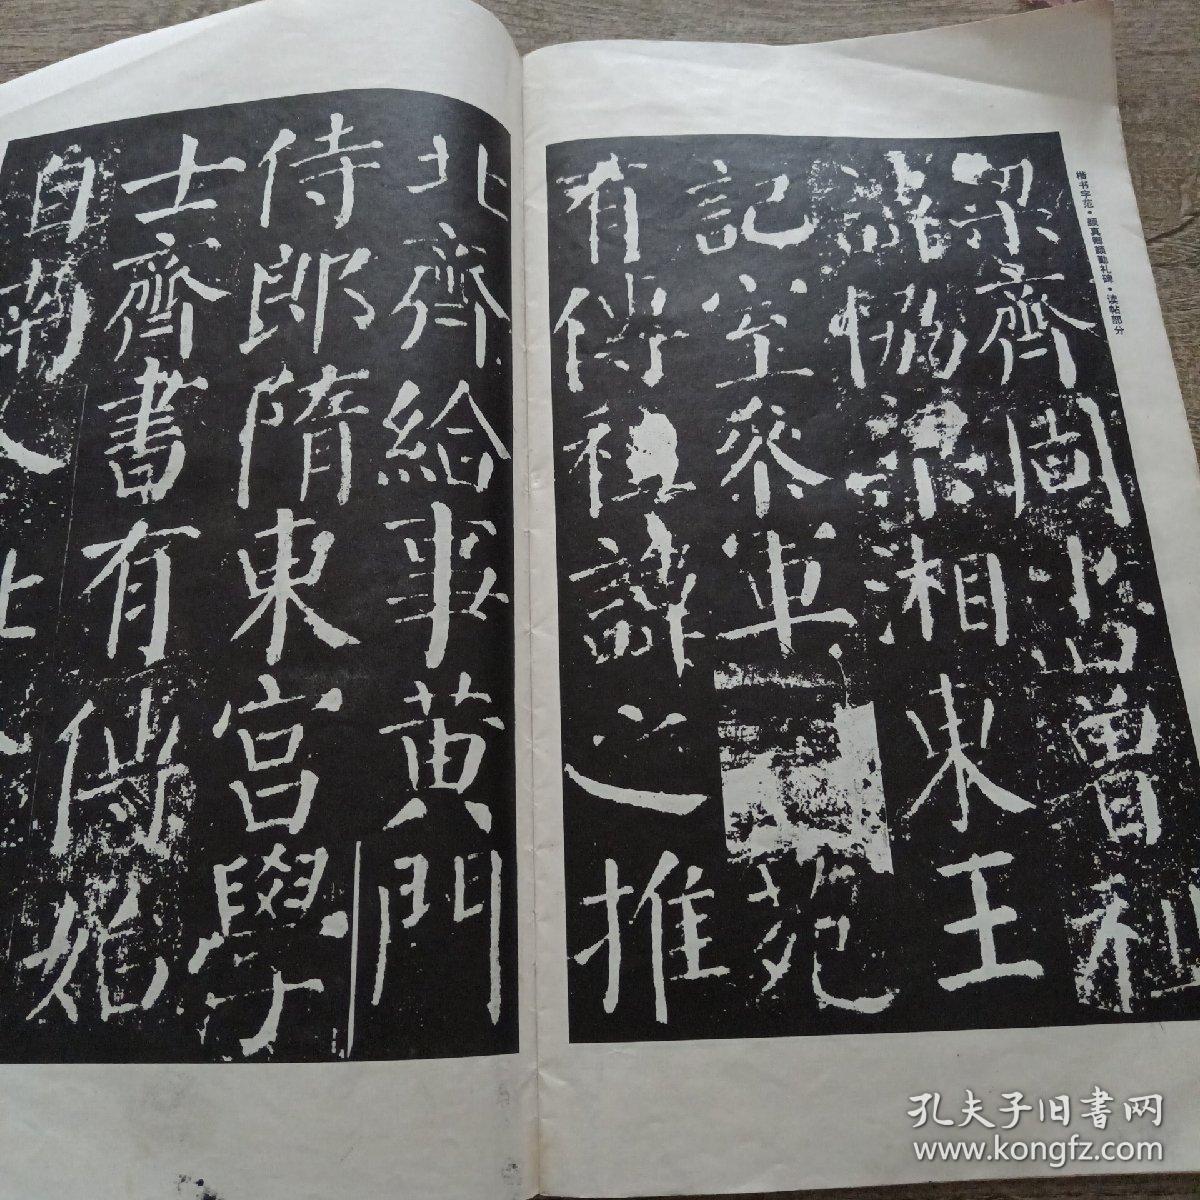 楷书字范·颜真卿颜勤礼碑·读帖部分
梁齊周書曾祖
諱協梁湘東王
記室參軍苑
有傳祖諱之推
北齊給事黃門
侍郎隋東宮學
士齊書有傳始
自南入北
孔夫子旧书网
www.kongfz.com